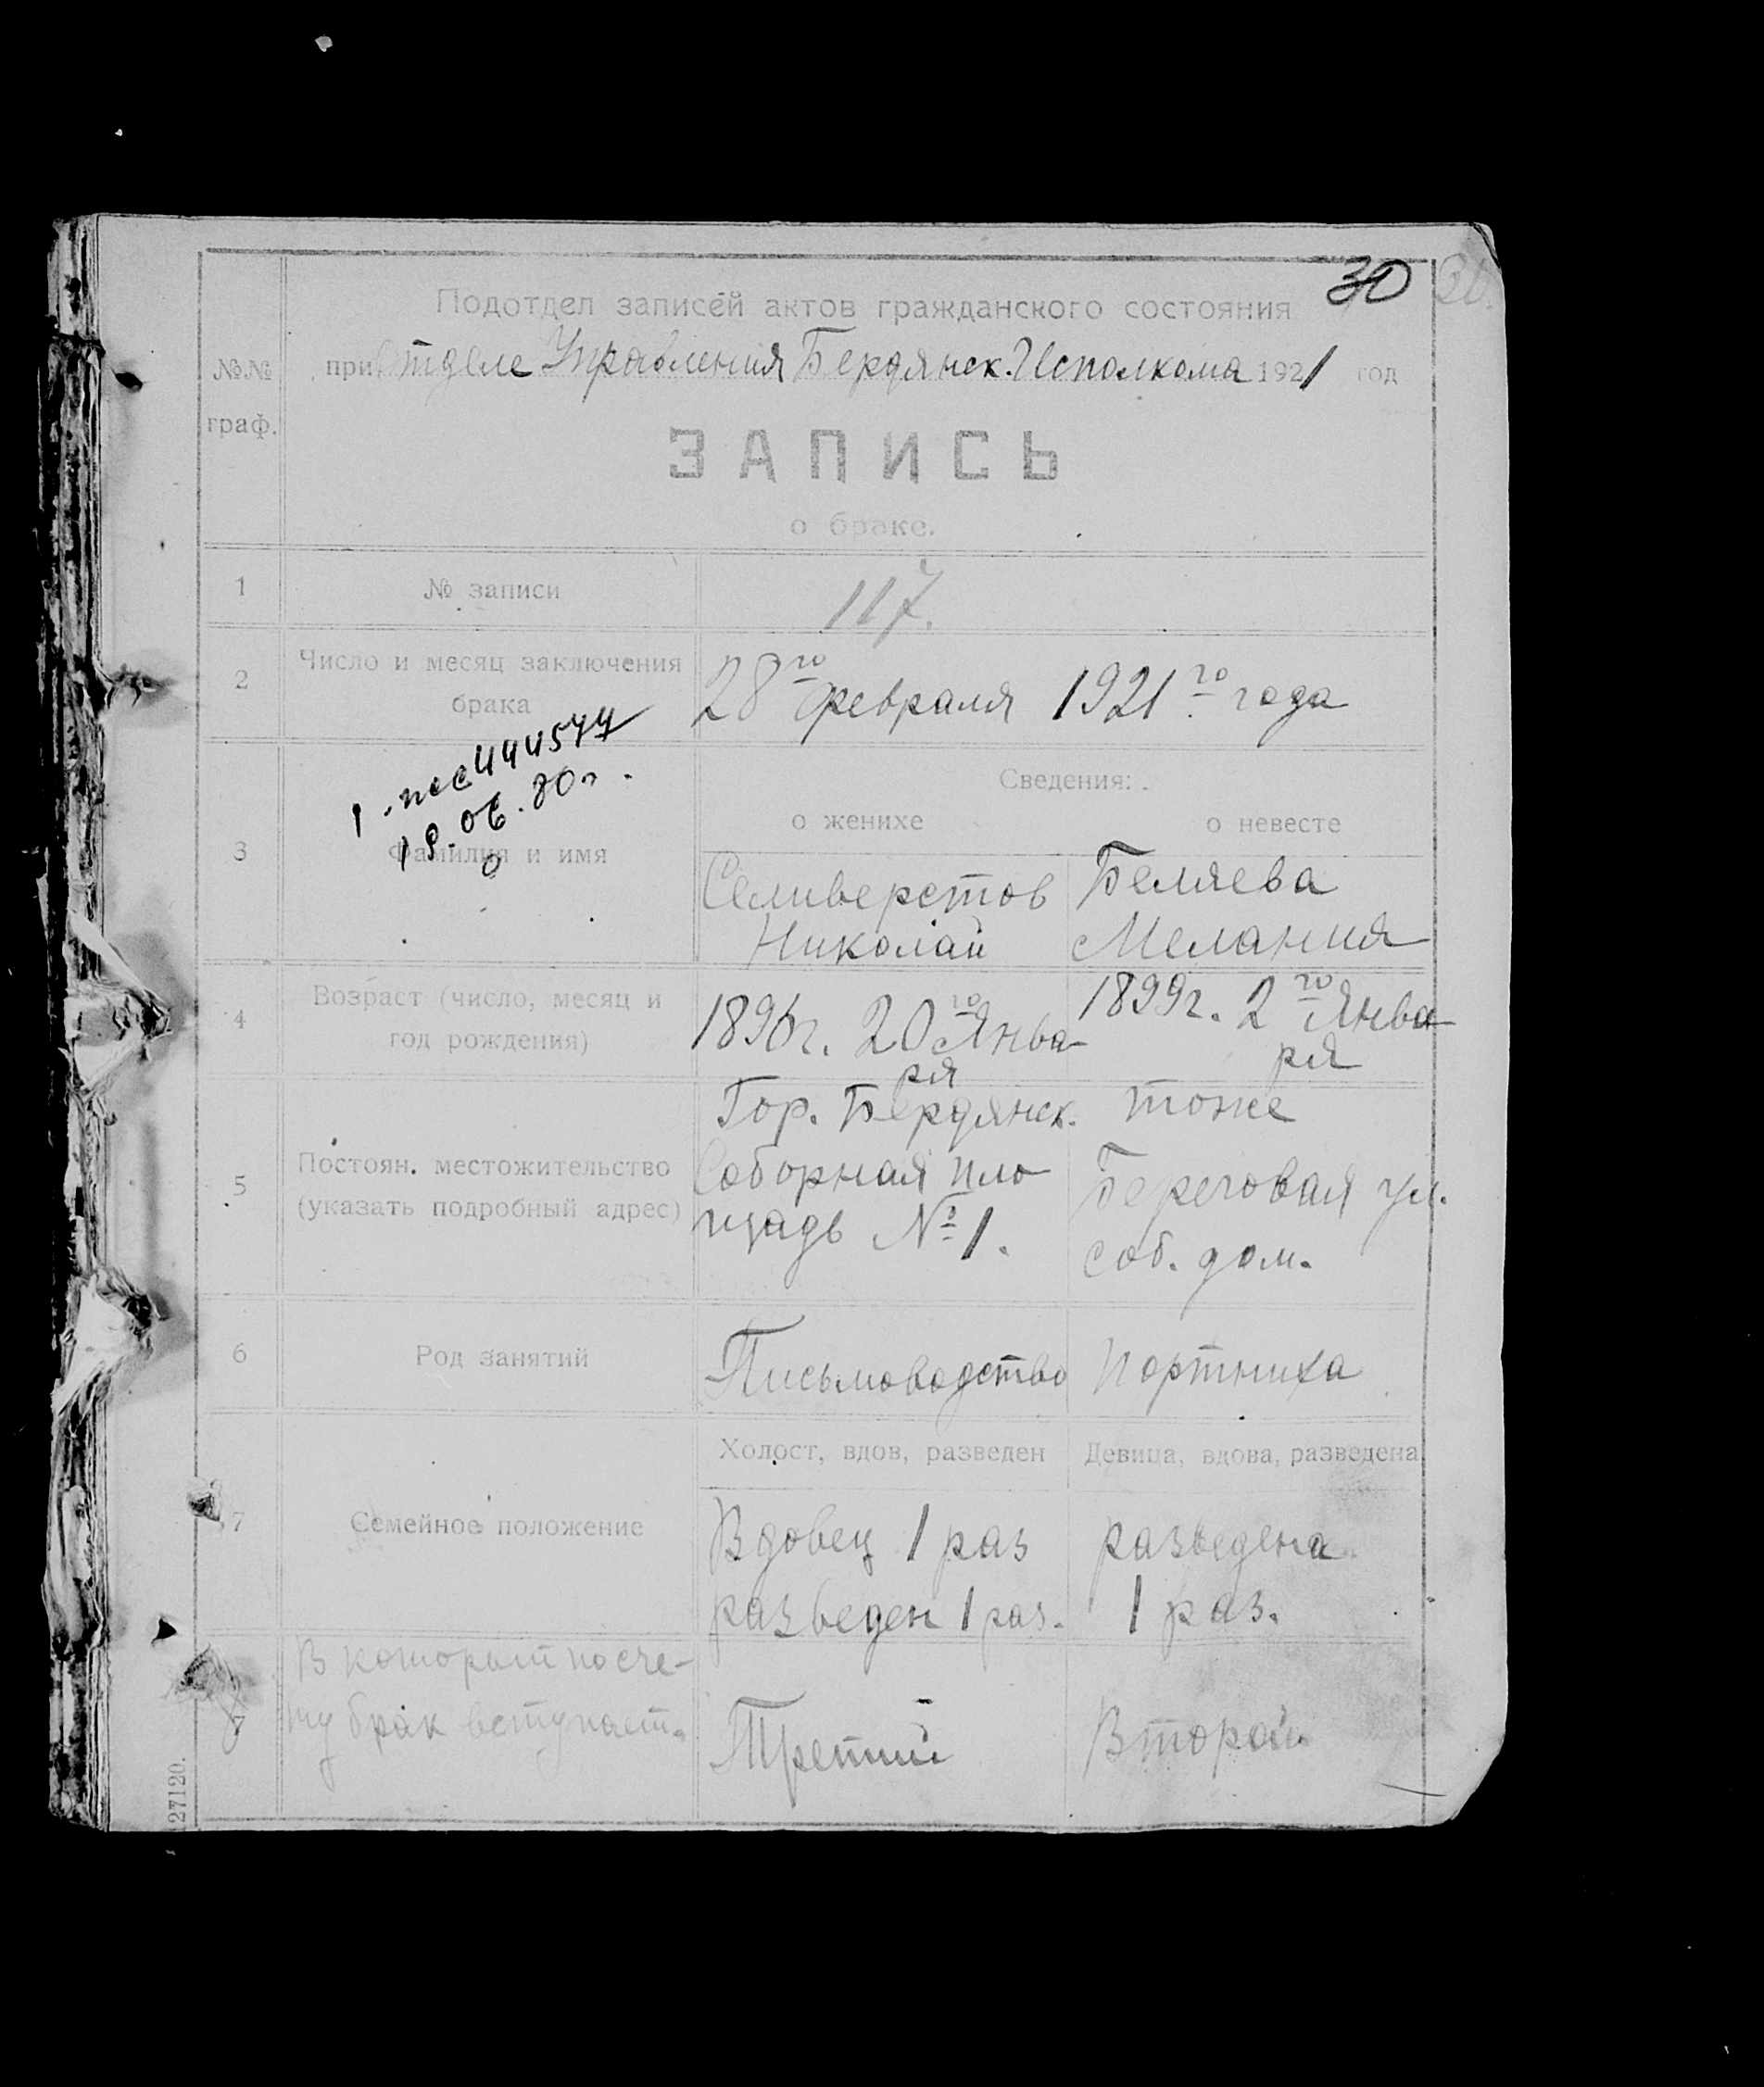 30
Подотдел записей актов гражданского состояния
при Отделе Управления Бердянск. Исполкома 1921 год
№№
граф.
ЗАПИСЬ
о браке.
1 № записи 117.
2 Число и месяц заключения
брака
28го февраля 1921го года
444577
19.06.80г.
Сведения:
о женихе о невесте
3 Фамилия и имя
Селиверстов Беляева
Николай Мелания
4 Возраст (число, месяц и
год рождения)
1896г. 20го Янва-
ря
1899г. 2го Янва-
ря
5 Постоян. местожительство
(указать подробный адрес)
Гор. Бердянск.
Соборная пло
щадь № 1.
тоже
Береговая ул.
соб. дом.
6 Род занятий Письмоводство Портниха
Холост, вдов, разведен Девица, вдова, разведена
7 Семейное положение
Вдовец 1 раз разведена
разведен 1 раз. 1 раз.
В который по сче-
ту брак вступает.
Третий Второй
27120.